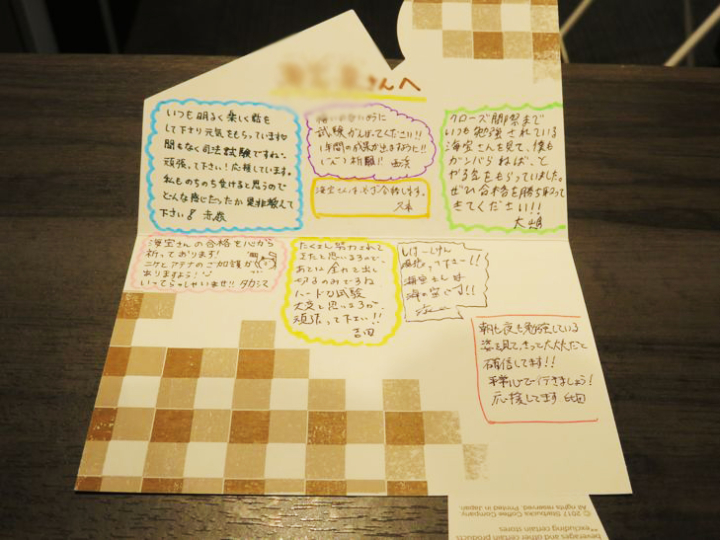 さんへ
いつも明るく楽しく話を
して下さり元気をもらっています
間もなく司法試験ですね。
頑張って下さい!応援しています。
私ものちのち受けると思うので
どんな感じだったか是非教えて
下さい
試験がんばってください!!
1年間の成果が出ますように!!
祈願!!
クローズ間際まで
いつも勉強されている
海宝さんを見て、僕も
ガンバらねば、と
やる気をもらっていました。
ぜひ合格を勝ち取って
きてください!!
大嶋
海宝さんの合格を心から
祈っております!
ニケとアテナのご加護が
ありますよう!
いってらっしゃいませ!! タカシマ
たくさん努力されて
きたと思いるので、
あとは全力で出し
切るのみですね
ハードな試験
大変と思いますが、
頑張って下さい!!
吉田
しけーしけん
海宝さんは
朝も夜も勉強している
姿を見て、きっと大丈夫だと
確信してます!!
平常心で行きましょう!
応援してます
© 2017 Starbucks Coffee Company
All rights reserved. Printed in Japan
beverages and other certain products
**excluding certain stores